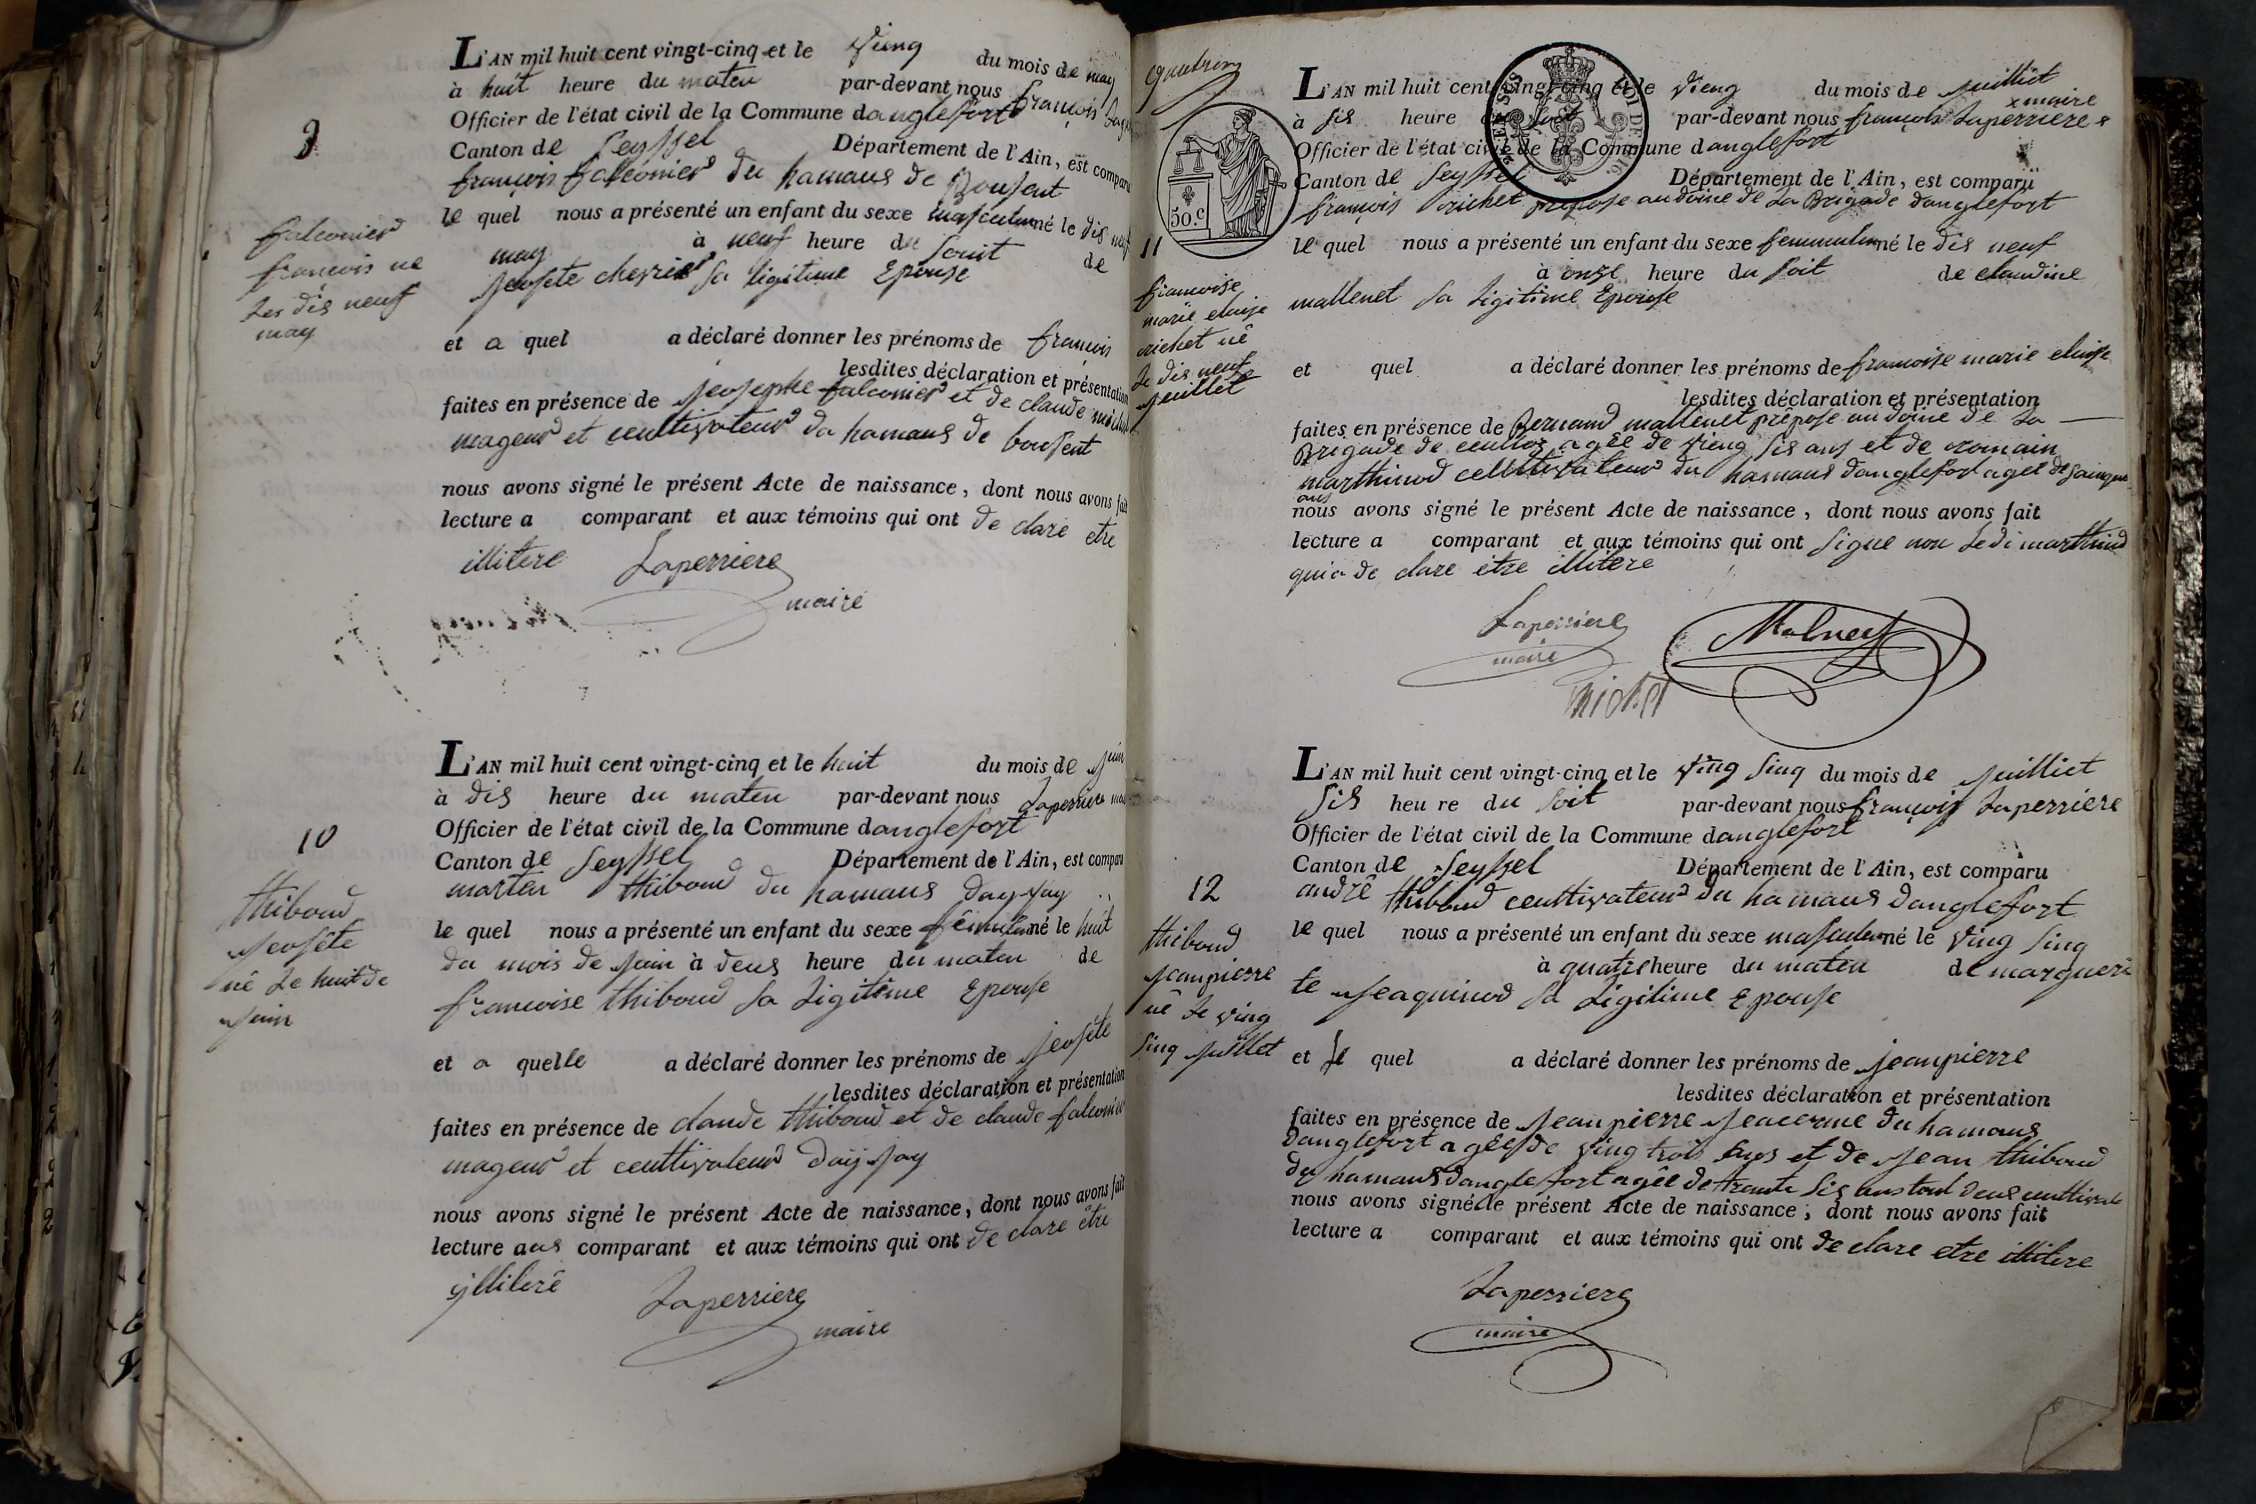 L'AN mil huit cent vingt-cinq et le vieng du mois de may
à huit heure du maten par-devant nous françois
Officier de l'état civil de la Commune danglefort
Canton de Seyssel Département de l'Ain, est comparu
françois falconier du hamaus de
le quel nous a présenté un enfant du sexe masculin né le dis neuf
may à neuf heure du soit de
jeosete chevrier sa ligitime Epouse
et a quel a déclaré donner les prénoms de françois
lesdites déclaration et présentation
faites en présence de jeosephe falconier et de claude michel
mageur et ceultivateur du hamaus de bousent
nous avons signé le présent Acte de naissance, dont nous avons fait
lecture a comparant et aux témoins qui ont de clare etre
illitere Laperriere
maire
falconier
françois né
Les dis neuf
may
L'AN mil huit cent vingt-cinq et le huit du mois de juin
à dis heure du maten par-devant nous Laperriere
Officier de l'état civil de la Commune danglefort
Canton de Seyssel Département de l'Ain, est comparu
marten thiboud du hamaus
le quel nous a présenté un enfant du sexe né le huit
du mois de juin à deus heure du maten de
francoise thiboud sa Ligitime Epouse
et a quelle a déclaré donner les prénoms de jeosête
lesdites déclaration et présentation
faites en présence de claude thiboud et de claude falconier
mageur et ceultivateur
nous avons signé le présent Acte de naissance, dont nous avons fait
lecture aus comparant et aux témoins qui ont de clare être
Laperriere
maire
10
thiboud
jeosête
né Le huit de
juin
50.c
L'AN mil huit cent vingt-cinq et le vieng du mois de juilliet
à sis heure du soit par-devant nous françois Laperriere x maire
Officier de l'état civil de la Commune danglefort
Canton de Seyssel Département de l'Ain, est comparu
françois richet prepose au doine de La Brigade danglefort
le quel nous a présenté un enfant du sexe né le dis neuf
à onze heure du soit de claudine
mallenet sa Ligitime Epouse
et quel a déclaré donner les prénoms de francoise marie eloise
lesdites déclaration et présentation
faites en présence de Bernard mallenet prêpose au doine de La
Brigade de agêe de vieng sis ans et de romain
marthinod du hamaus danglefort agee de
ans
nous avons signé le présent Acte de naissance, dont nous avons fait
lecture a comparant et aux témoins qui ont signe non Le di marthinod
qui a de clare etre illitere
Laperriere
maire
11
francoise
marie eloise
richet né
Le dis neuf
jeuillet
L'AN mil huit cent vingt-cinq et le ving sinq du mois de juilliet
sis heure du soit par-devant nous françois Laperriere
Officier de l'état civil de la Commune danglefort
Canton de Seyssel Département de l'Ain, est comparu
andré thiboud ceultivateur du hamaus danglefort
le quel nous a présenté un enfant du sexe masculen né le ving sinq
à quatre heure du maten de margueri
te jeaquinod sa Ligitime Epouse
et le quel a déclaré donner les prénoms de jeanpierre
lesdites déclaration et présentation
faites en présence de jeanpierre du hamaus
danglefort agées de ving trois ans et de jean thiboud
du hamaus danglefort agêe de trante sis ans tout deus
nous avons signé le présent Acte de naissance, dont nous avons fait
lecture a comparant et aux témoins qui ont de clare etre illitere
Laperriere
maire
12
thiboud
jeanpierre
né Le ving
sinq juillet